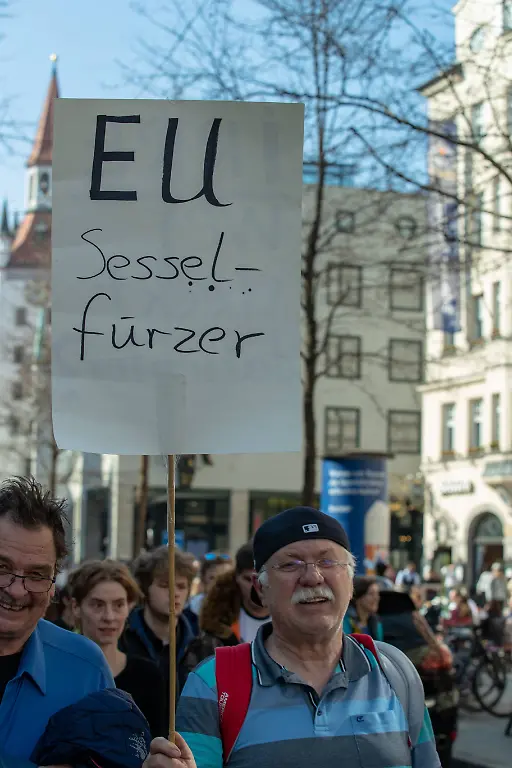 EU
Sessel-
fürzer